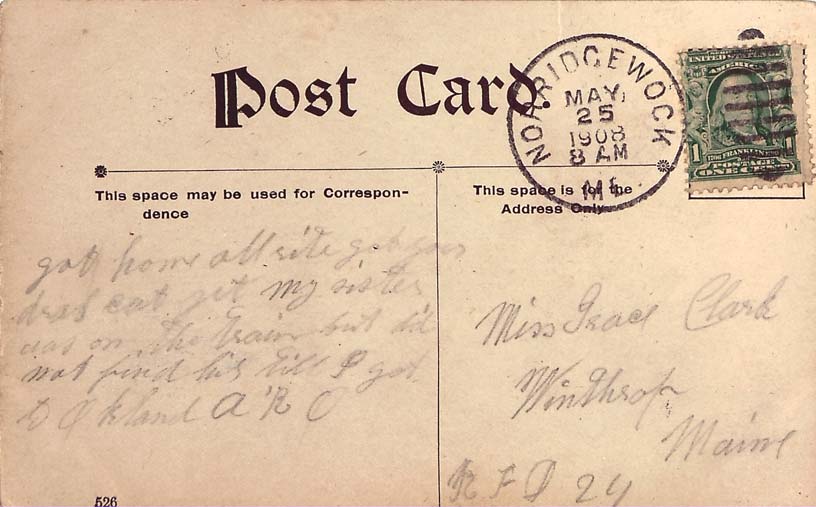 Post Card.
NORRIDGEWOCK
MAY
25
1908
8 AM
ME.
UNITED STATES OF
AMERICA
1706 FRANKLIN 1790
POSTAGE
1 ONE CENT 1
This space may be used for Correspon-
dence
This space is for the
Address Only
got home all rite got your
cat yet my sister
was on the train but did
not find his till I got
to Oakland A R C
Miss Grace Clark
Winthrop
Maine
R F D 24
526